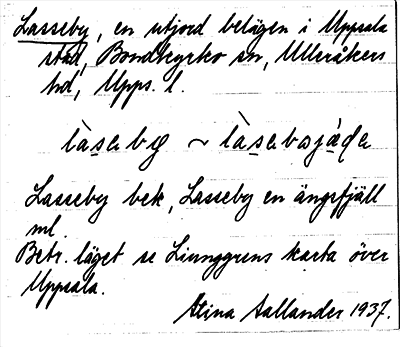 Lasseby, en utjord belägen i Uppsala
stad, Bondkyrko sn, Ulleråkers
hd, Upps. l.
làsaby ~ làsabsjàḍa
Lasseby bek, Lasseby en ängsfjäll
ml.
Betr. läget se Ljunggrens karta över
Uppsala.
Stina Aallander 1937.